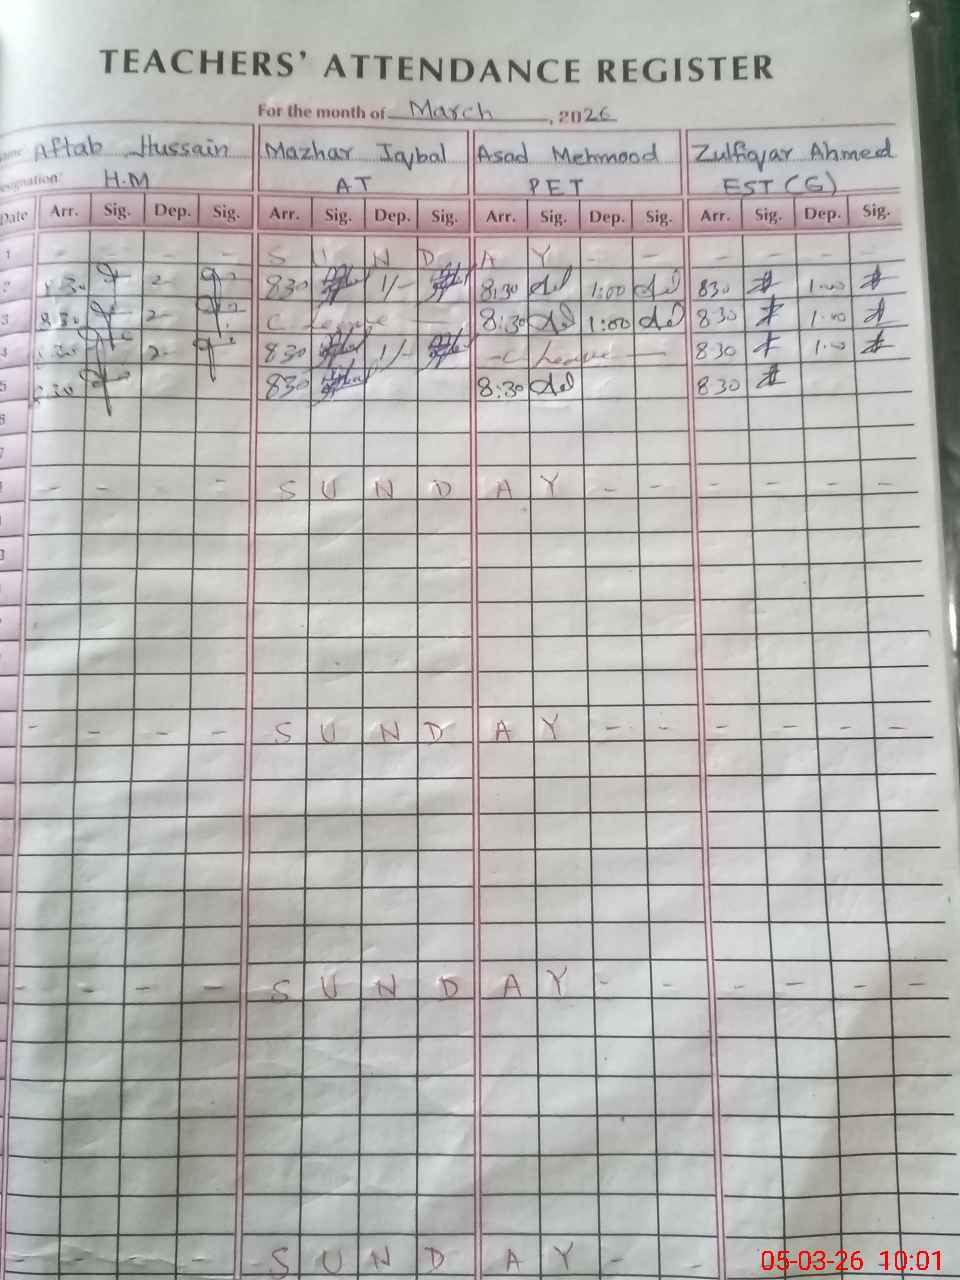 TEACHERS' ATTENDANCE REGISTER
For the month of March, 2026
Aftab Hussain Mazhar Iqbal Asad Mehmood Zulfiqar Ahmed
Designation: H.M AT PET EST (G)
Date Arr. Sig. Dep. Sig. Arr. Sig. Dep. Sig. Arr. Sig. Dep. Sig. Arr. Sig. Dep. Sig.
1 - - - - S U N D A Y - - - - - -
2 8.30 2- 830 1/- 8:30 1:00 830 1:00
3 8.30 2- C Leave 8:30 1:00 830 1:00
4 8.30 2- 830 1/- -C Leave- 830 1:00
5 8.30 830 8:30 830
6
7
- - - - S U N D A Y - - - - - -
- - - - S U N D A Y - - - - - -
- - - - S U N D A Y - - - - - -
S U N D A Y -
05-03-26 10:01